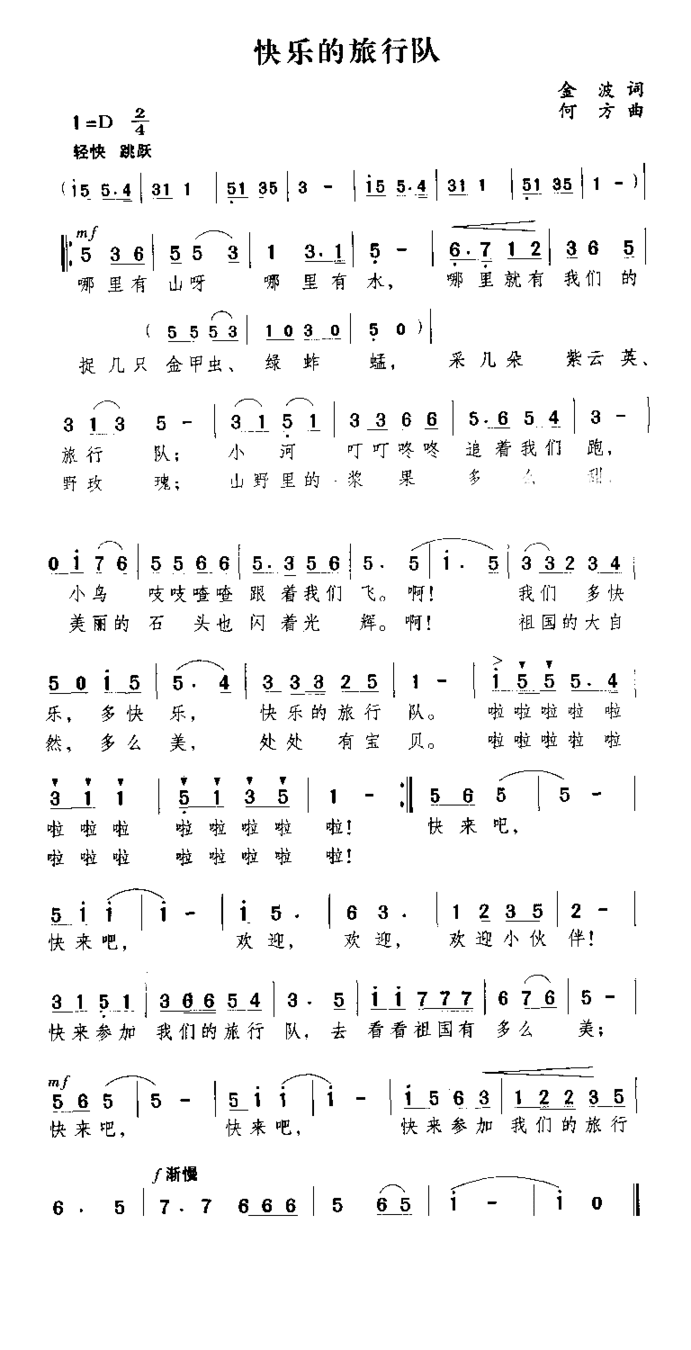 快乐的旅行队
金 波 词
何 方 曲
1=D 2/4
轻快 跳跃
(i5 5.4 | 31 1 | 51 35 | 3 - | i5 5.4 | 31 1 | 51 35 | 1 - )|
mf
5 3 6 | 5 5 3 | 1 3.1 | 5 - | 6.7 1 2 | 3 6 5 |
哪 里 有 山 呀 哪 里 有 水, 哪 里 就 有 我 们 的
( 5 5 5 3 | 1 0 3 0 | 5 0 )|
捉 几 只 金 甲 虫、 绿 蚱 蜢, 采 几 朵 紫 云 英、
3 1 3 5 - | 3 1 5 1 | 3 3 6 6 | 5.6 5 4 | 3 - |
旅 行 队; 小 河 叮 叮 咚 咚 追 着 我 们 跑,
野 玫 瑰; 山 野 里 的 浆 果 多 么 甜,
0 i 7 6 | 5 5 6 6 | 5.3 5 6 | 5. 5 | i. 5 | 3 3 2 3 4 |
小 鸟 吱 吱 喳 喳 跟 着 我 们 飞。 啊! 我 们 多 快
美 丽 的 石 头 也 闪 着 光 辉。 啊! 祖 国 的 大 自
5 0 i 5 | 5. 4 | 3 3 3 2 5 | 1 - | i 5 5 5.4 |
乐, 多 快 乐, 快 乐 的 旅 行 队。 啦 啦 啦 啦 啦
然, 多 么 美, 处 处 有 宝 贝。 啦 啦 啦 啦 啦
3 1 1 | 5 1 3 5 | 1 - :| 5 6 5 | 5 - |
啦 啦 啦 啦 啦 啦 啦 啦! 快 来 吧,
啦 啦 啦 啦 啦 啦 啦 啦!
5 i i | i - | i 5. | 6 3. | 1 2 3 5 | 2 - |
快 来 吧, 欢 迎, 欢 迎, 欢 迎 小 伙 伴!
3 1 5 1 | 3 6 6 5 4 | 3. 5 | i i 7 7 7 | 6 7 6 | 5 - |
快 来 参 加 我 们 的 旅 行 队, 去 看 看 祖 国 有 多 么 美;
mf
5 6 5 | 5 - | 5 i i | i - | i 5 6 3 | 1 2 2 3 5 |
快 来 吧, 快 来 吧, 快 来 参 加 我 们 的 旅 行
f 渐慢
6 . 5 | 7.7 6 6 6 | 5 6 5 | i - | i 0 ‖